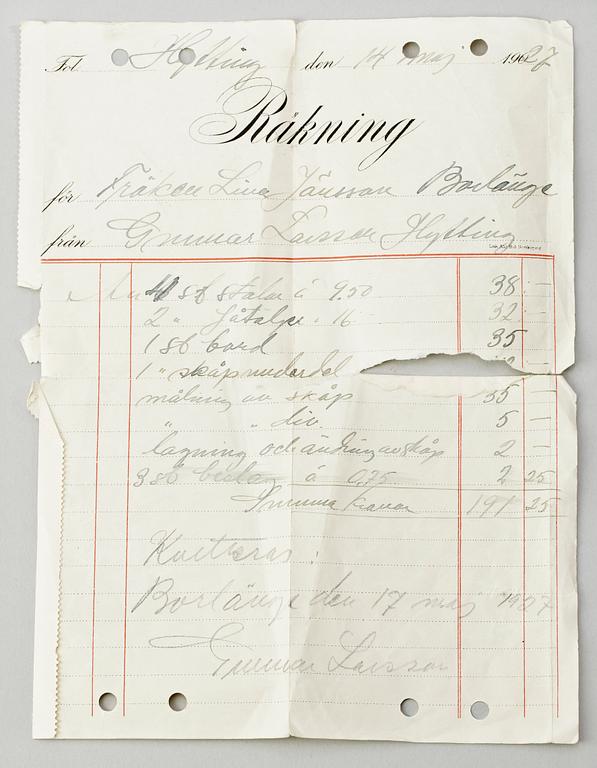 Fol. Hytting den 14 maj 1927
Räkning
för Fröken Lina Jansson Borlänge
från Gunnar Larsson Hytting
4 st stolar á 9.50 38 : —
2 " fåtöljer " 16 32 : —
1 st bord 35
1 " skåpunderdel
målning av skåp 35 —
" " div. 5 —
lagning och ändring av skåp 2 —
3 st beslag á 0,75 2 25
Summa kronor 191 25
Kvitteras :
Borlänge den 17 maj 1927
Gunnar Larsson